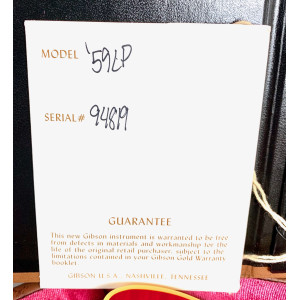 MODEL '59LP
SERIAL# 94819
GUARANTEE
This new Gibson instrument is warranted to be free
from defects in materials and workmanship for the life
of the original retail purchaser, subject to the
limitations contained in your Gibson Gold Warranty
booklet.
GIBSON U.S.A. NASHVILLE, TENNESSEE